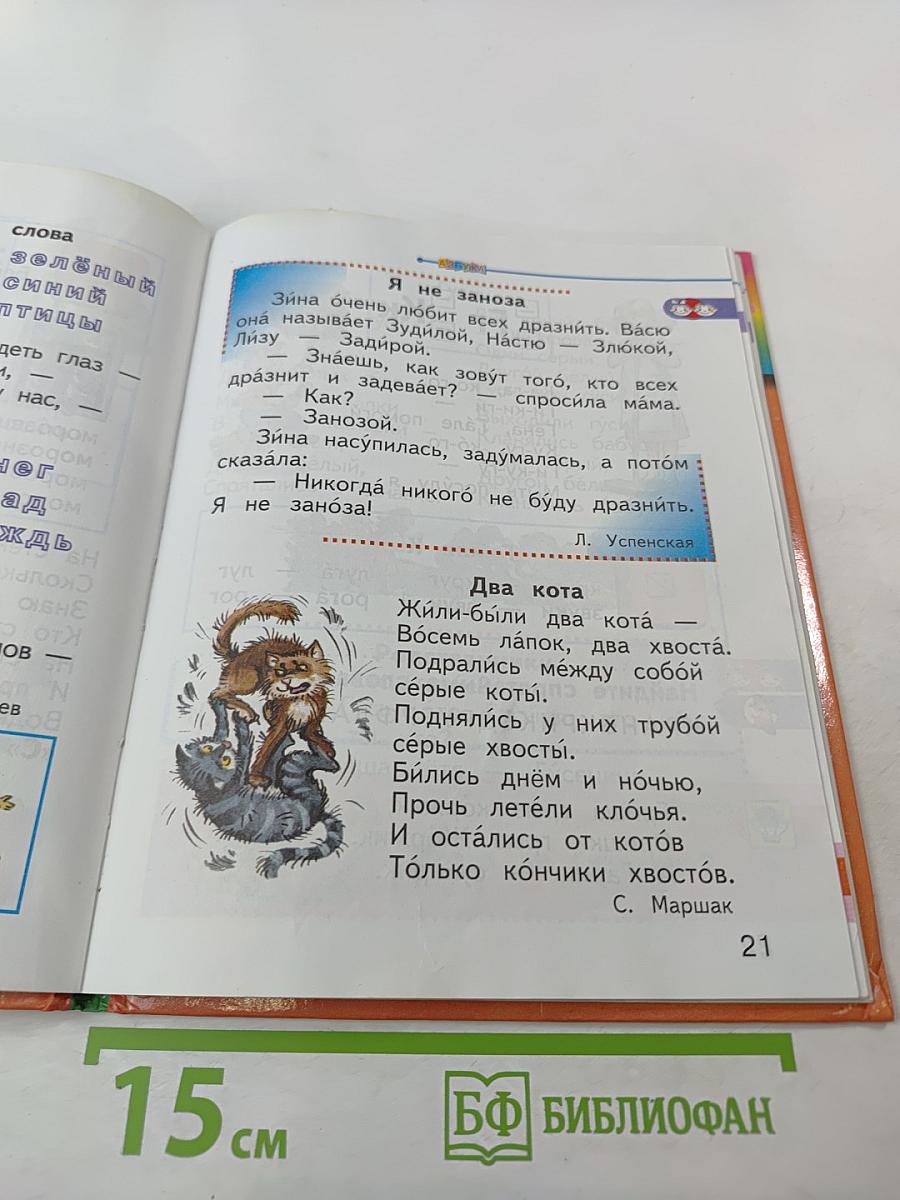 слова
зелёный
синий
птицы
деть глаз —
и, —
у нас, —
нег
ад
ждь
нов —
ев
АЗБУКА
Я не заноза
Зи́на о́чень лю́бит всех дразни́ть. Ва́сю
она́ называ́ет Зуди́лой, На́стю — Злю́кой,
Ли́зу — Зади́рой.
— Зна́ешь, как зову́т того́, кто всех
дра́знит и задева́ет? — спроси́ла ма́ма.
— Как?
— Занозой.
Зи́на насу́пилась, заду́малась, а пото́м
сказа́ла:
— Никогда́ никого́ не бу́ду дразни́ть.
Я не зано́за!
Л. Успенская
Два кота
Жи́ли-бы́ли два кота́ —
Во́семь ла́пок, два хвоста́.
Подрали́сь ме́жду собо́й
се́рые коты́.
Подняли́сь у них трубо́й
се́рые хвосты́.
Би́лись днём и но́чью,
Прочь лете́ли кло́чья.
И оста́лись от кото́в
То́лько ко́нчики хвосто́в.
С. Маршак
21
15 см
БФ БИБЛИОФАН